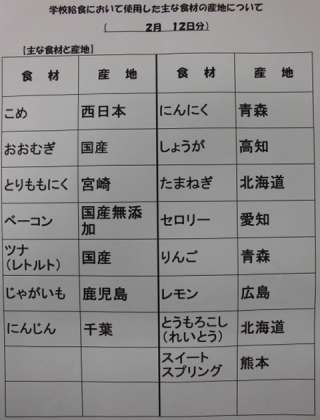 学校給食において使用した主な食材の産地について
( 2月 12日分)
[主な食材と産地]
食 材 産 地 食 材 産 地
こめ 西日本 にんにく 青森
おおむぎ 国産 しょうが 高知
とりももにく 宮崎 たまねぎ 北海道
ベーコン 国産無添加 セロリー 愛知
ツナ(レトルト) 国産 りんご 青森
じゃがいも 鹿児島 レモン 広島
にんじん 千葉 とうもろこし(れいとう) 北海道
スイートスプリング 熊本